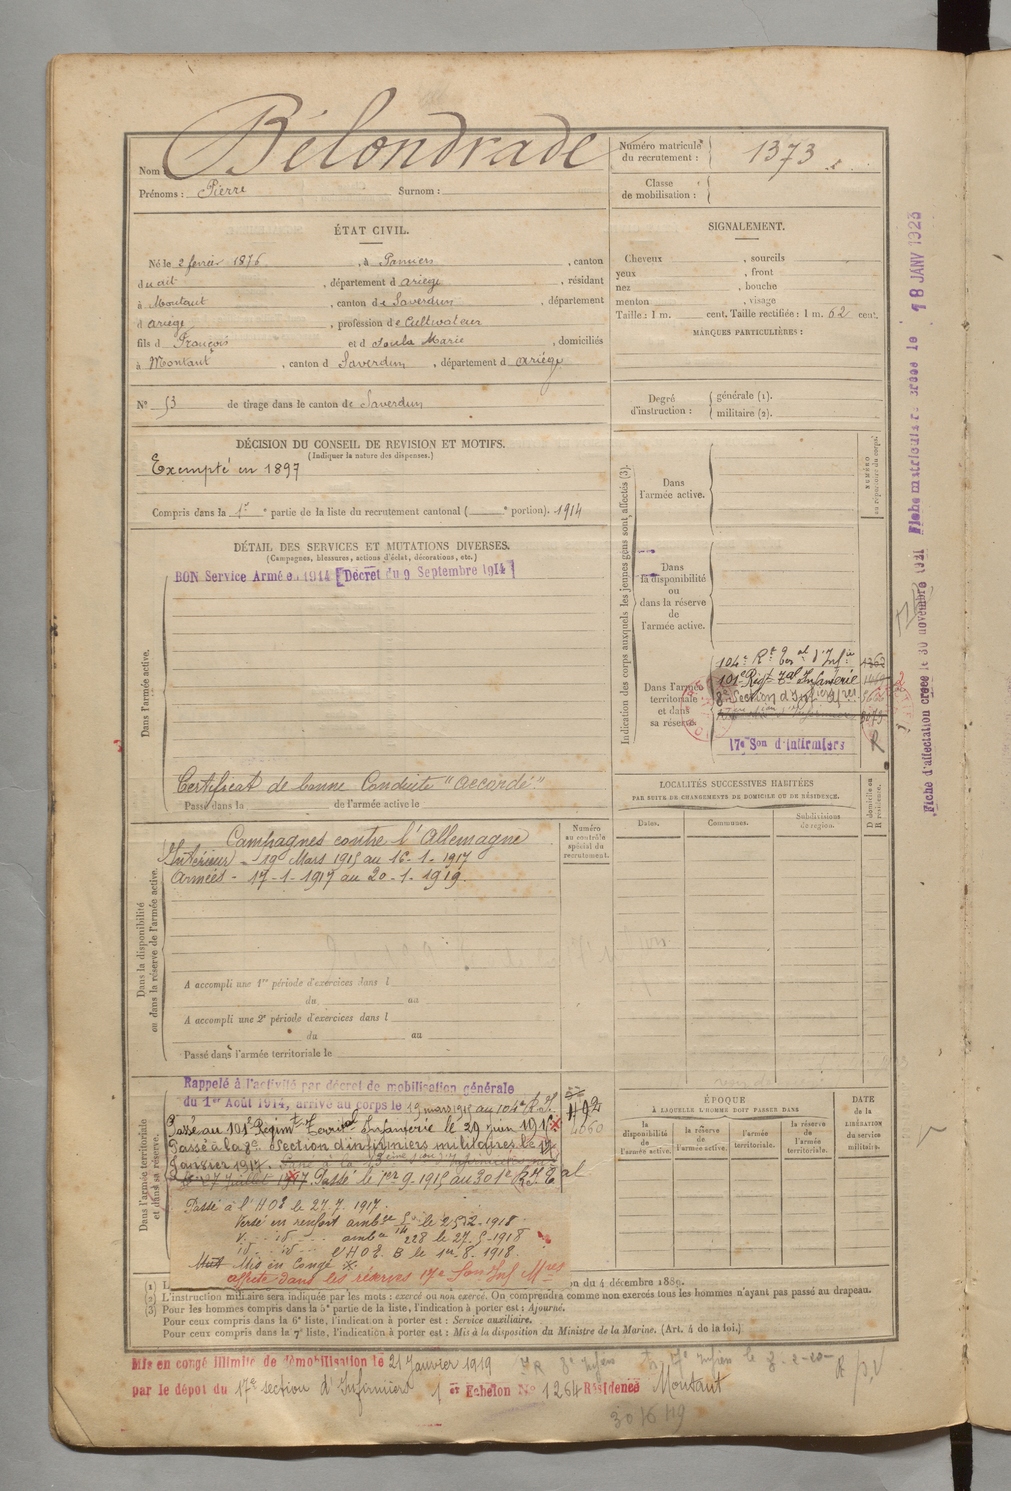 Nom Bélondrade
Prénoms : Pierre Surnom :
Numéro matricule du recrutement : 1373
Classe de mobilisation :
ÉTAT CIVIL.
Né le 2 février 1876, à Pamiers, canton
dudit, département d ariège, résidant
à Montaut, canton de Saverdun, département
d ariège, profession de Cultivateur
fils d François et d Soula Marie, domiciliés
à Montaut, canton d Saverdun, département d ariège
N° 53 de tirage dans le canton de Saverdun
SIGNALEMENT.
Cheveux , sourcils
yeux , front
nez , bouche
menton , visage
Taille : 1 m. cent. Taille rectifiée : 1 m. 62 cent.
MARQUES PARTICULIÈRES :
Degré d'instruction : générale (1).
militaire (2).
DÉCISION DU CONSEIL DE REVISION ET MOTIFS.
(Indiquer la nature des dispenses.)
Exempté en 1897
Compris dans la 1re partie de la liste du recrutement cantonal ( e portion). 1914
DÉTAIL DES SERVICES ET MUTATIONS DIVERSES.
(Campagnes, blessures, actions d'éclat, décorations, etc.)
BON Service Armé en 1914 [Décret du 9 Septembre 1914]
Dans l'armée active.
Certificat de bonne Conduite "accordé"
Passé dans la de l'armée active le
Indication des corps auxquels les jeunes gens sont affectés (3).
NUMÉRO au répertoire du corps.
Dans l'armée active.
Dans la disponibilité ou dans la réserve de l'armée active.
Dans l'armée territoriale et dans sa réserve.
104e Rt Ter al d'Infie
101e Rigt Tal Infanterie
8e Section d'Infiers Mres
17e Son d'infirmiers
LOCALITÉS SUCCESSIVES HABITÉES
PAR SUITE DE CHANGEMENTS DE DOMICILE OU DE RÉSIDENCE.
Dates. Communes. Subdivisions de région. D domicile ou R résidence.
Dans la disponibilité ou dans la réserve de l'armée active.
Numéro au contrôle spécial du recrutement.
Campagnes contre l'Allemagne
Intérieur - 19 Mars 1915 au 16-1-1917
Armées - 17-1-1917 au 20-1-1919.
A accompli une 1re période d'exercices dans l
du au
A accompli une 2e période d'exercices dans l
du au
Passé dans l'armée territoriale le
Dans l'armée territoriale et dans sa réserve.
Rappelé à l'activité par décret de mobilisation générale
du 1er Août 1914, arrivé au corps le 19 mars 1915 au 104e R.T.
Passé au 101e Régiment Territal Infanterie le 29 juin 1916
Passé à la 8e Section d'infirmiers militaires le 17
Janvier 1917.
Passé le 1er 9. 1915 au 301e R.I.T al
Passé à l'HOE le 27.7.1917.
Versé en renfort ambce le
ambce 228 le 27-5-1918
HOE. B le 1er-8-1918.
Mis en Congé
affecté dans les réserves 17e Son Inf Mres
ÉPOQUE
À LAQUELLE L'HOMME DOIT PASSER DANS
la disponibilité de l'armée active. la réserve de l'armée active. l'armée territoriale. la réserve de l'armée territoriale.
DATE de la LIBÉRATION du service militaire.
(1) L on du 4 décembre 1889.
(2) L'instruction militaire sera indiquée par les mots : exercé ou non exercé. On comprendra comme non exercés tous les hommes n'ayant pas passé au drapeau.
(3) Pour les hommes compris dans la 5e partie de la liste, l'indication à porter est : Ajourné.
Pour ceux compris dans la 6e liste, l'indication à porter est : Service auxiliaire.
Pour ceux compris dans la 7e liste, l'indication à porter est : Mis à la disposition du Ministre de la Marine. (Art. 4 de la loi.)
Mis en congé illimité de démobilisation le 21 Janvier 1919
par le dépôt du 17e section d'Infirmiers 1er Echelon No 1264 Résidence Montaut
Fiche d'affectation créée le 30 novembre 1921 Fiche matriculaire créée le 18 JANV 1923